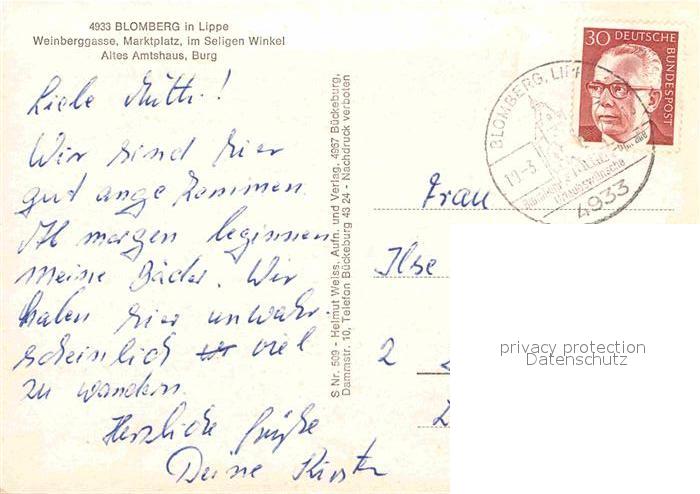 4933 BLOMBERG in Lippe
Weinberggasse, Marktplatz, im Seligen Winkel
Altes Amtshaus, Burg
Liebe Mutti!
Wir sind hier
gut angekommen.
Ab morgen beginnen
meine Bäder. Wir
haben hier unwahr-
scheinlich viel
zu wandern.
Herzliche Grüße
Deine
S Nr. 509 - Helmut Weiss, Aufn. und Verlag, 4967 Bückeburg,
Dammstr. 10, Telefon Bückeburg 43 24 - Nachdruck verboten
30 DEUTSCHE BUNDESPOST
BLOMBERG, LIPP
4933
Frau
Ilse
2
privacy protection
Datenschutz